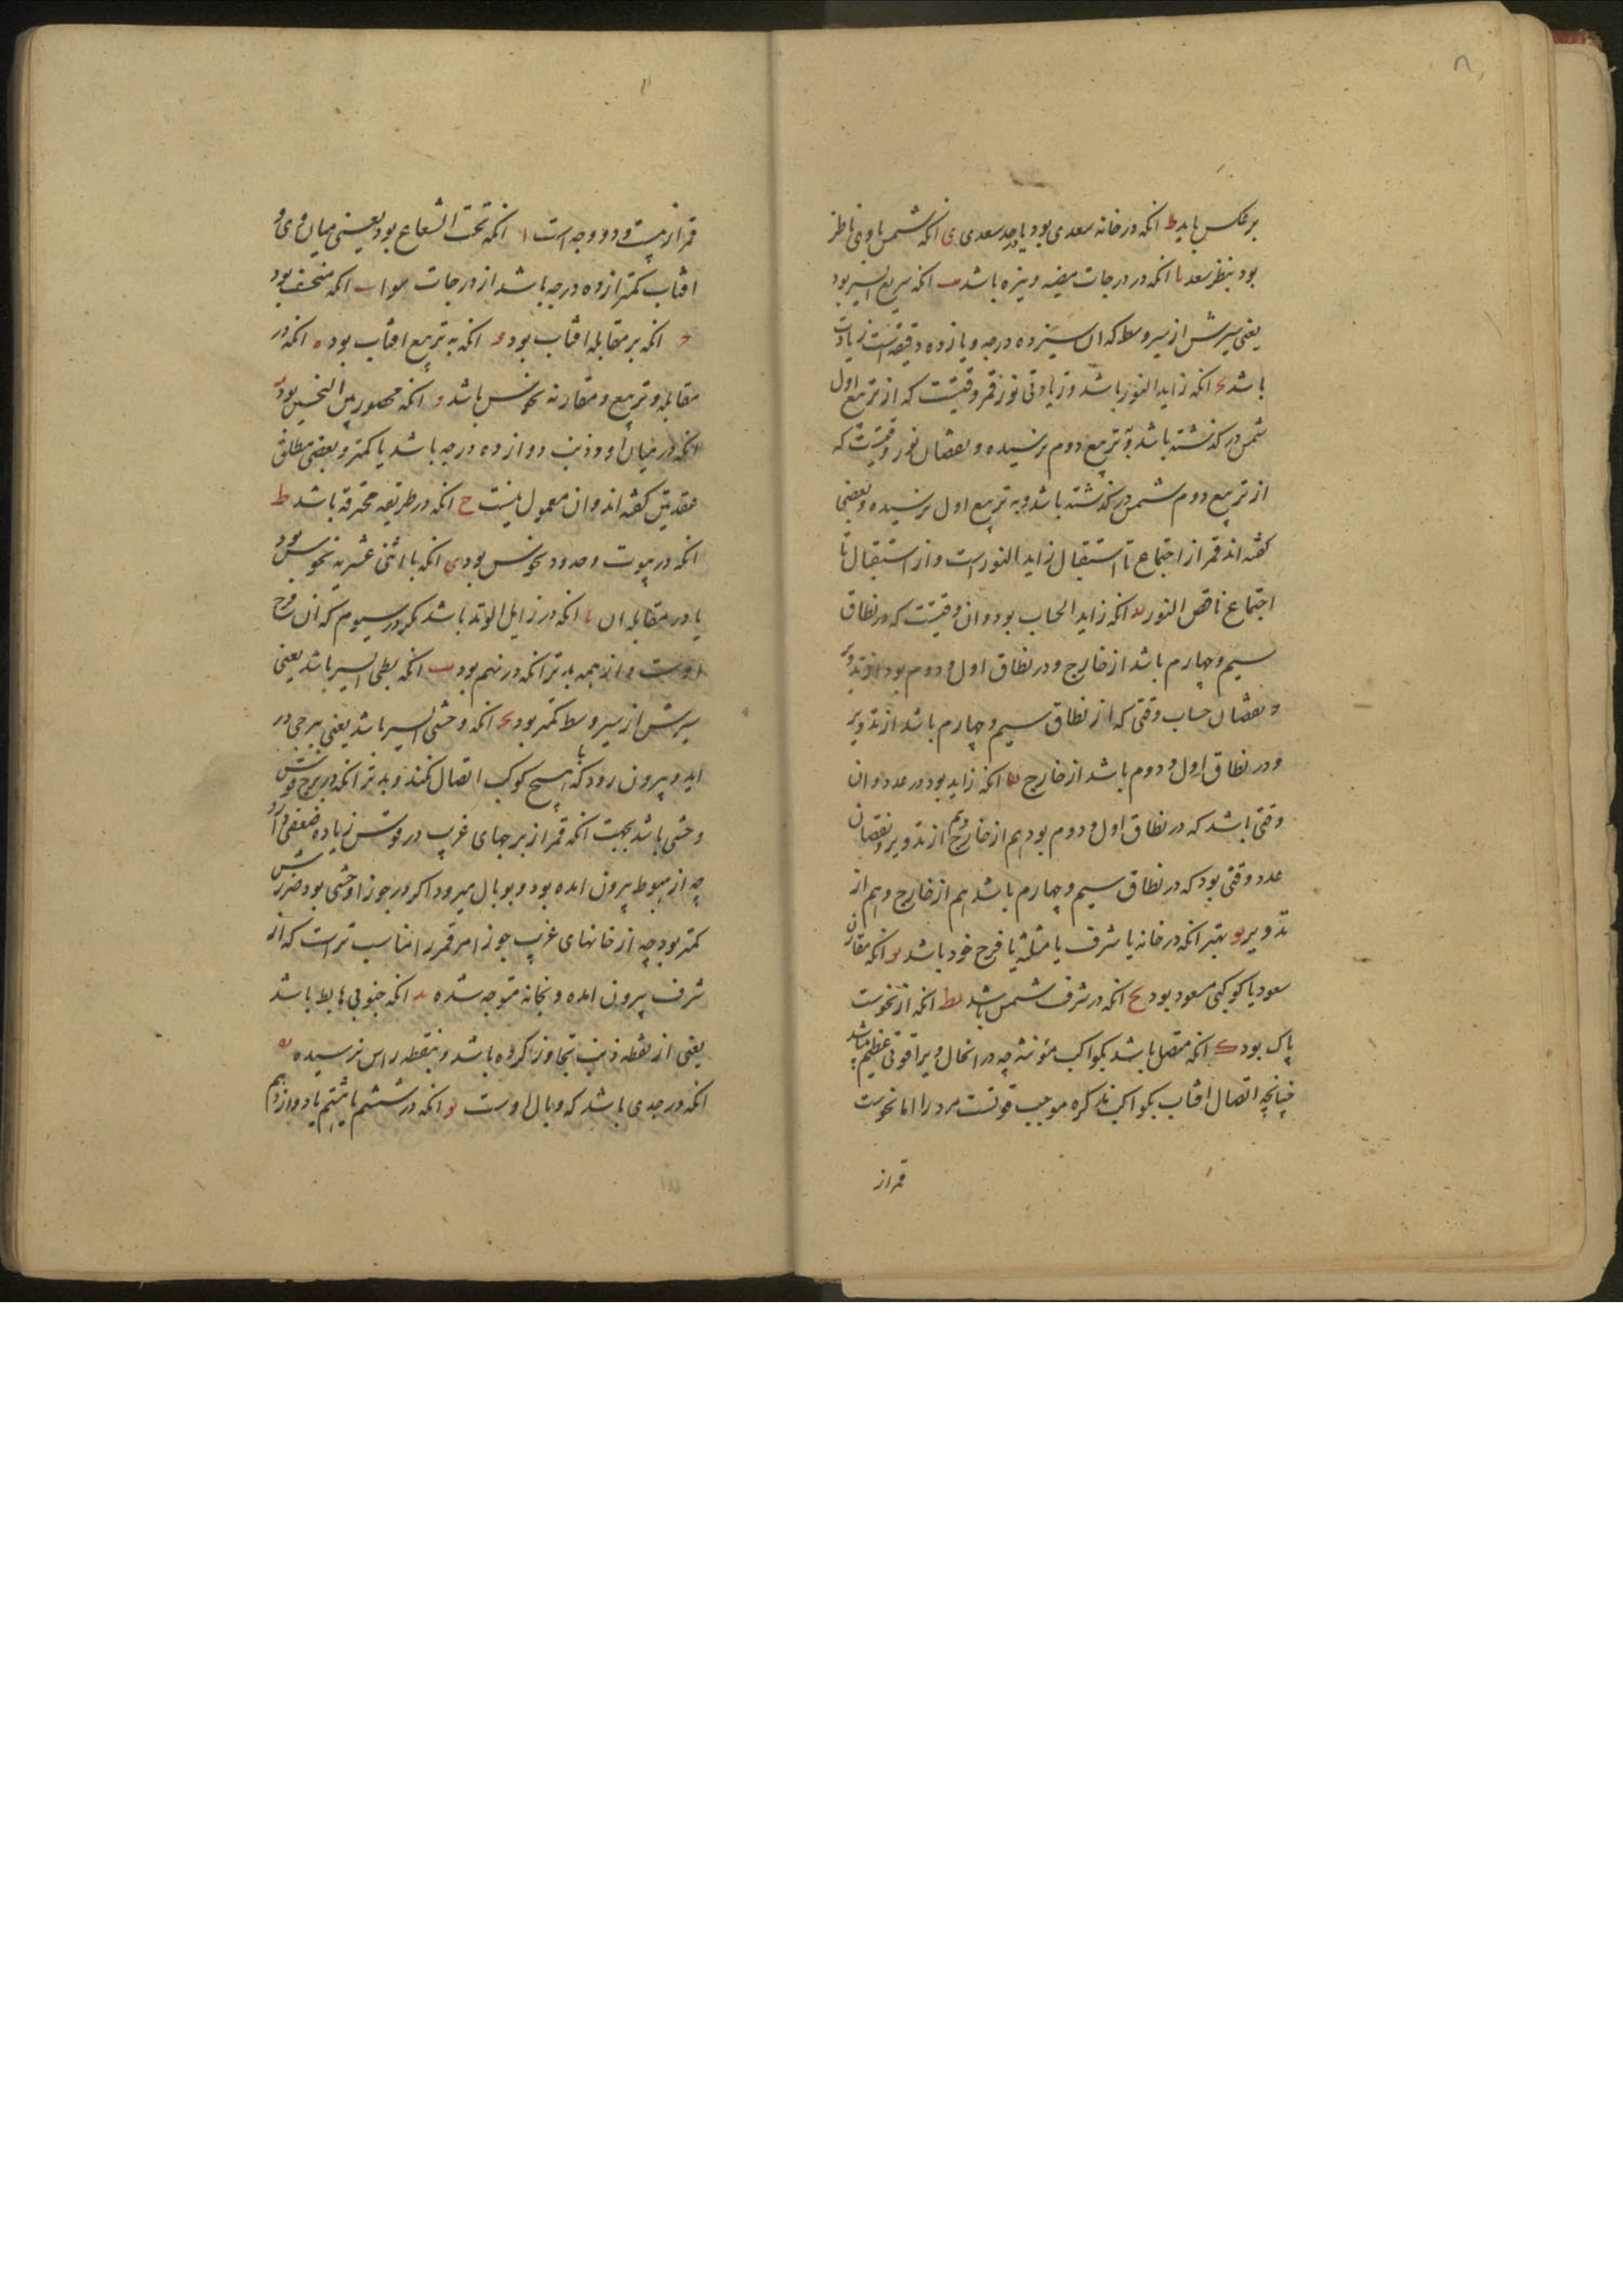 بر عکس باید ط انکه در خانه سعدی بود یا حد سعدی ی انکه شمس با وی ناظر
بود بنظر سعد یا انکه در درجات مضیه و نیره باشد یب انکه سریع السیر بود
یعنی سیرش از سیر وسط که ان سیزده درجه و یازده دقیقه است زیادت
باشد یج انکه زاید النور باشد و زیادتی نور قمر وقتیست که از تربیع اول
شمس در گذشته باشد و به تربیع دوم نرسیده و نقصان نور وقتیست که
از تربیع دوم شمس در گذشته باشد و به تربیع اول نرسیده و بعضی
گفته اند قمر از اجتماع تا استقبال زاید النور است و از استقبال تا
اجتماع ناقص النور ید انکه زاید الحساب بود و ان وقتیست که در نطاق
سیم و چهارم باشد از خارج و در نطاق اول و دوم بود از تدویر
و نقصان حساب وقتی که از نطاق سیم و چهارم باشد از تدویر
و در نطاق اول و دوم باشد از خارج یه انکه زاید بود در عدد و ان
وقتی باشد که در نطاق اول و دوم بود هم از خارج و هم از تدویر و نقصان
عدد وقتی بود که در نطاق سیم و چهارم باشد هم از خارج و هم از
تدویر یو بهتر انکه در خانه یا شرف یا مثلثه یا فرح خود باشد یز انکه مقارن
سعود یا کوکبی مسعود بود یح انکه در شرف شمس باشد یط انکه از نحوست
پاک بود ک انکه متصل باشد بکواکب مؤنثه چه در انحال ویرا قوتی عظیم باشد
چنانچه اتصال افتاب بکواکب مذکره موجب قوتست مرد را اما نحوست
قمر از
قمر از بیست و دو وجه است ا انکه تحت الشعاع بود یعنی میان وی و
افتاب کمتر از ده درجه باشد از درجات سوا ب انکه منخسف بود
ج انکه بر مقابله افتاب بود د انکه به تربیع افتاب بود ه انکه در
مقابله و تربیع و مقارنه نحوس باشد و انکه محصور بین النحسین بود ز
انکه در میان او و ذنب دوازده درجه باشد یا کمتر و بعضی مطلق
عقدتین گفته اند و ان معمول نیست ح انکه در طریقه محترقه باشد ط
انکه در بیوت و حدود نحوس بود ی انکه با اثنی عشریه نحوس بود
یا در مقابله ان یا انکه در زایل الوتد باشد مگر در سیوم که ان فرح
اوست و از همه بدتر انکه در نهم بود یب انکه بطی السیر باشد یعنی
سیرش از سیر وسط کمتر بود یج انکه وحشی السیر باشد یعنی ببرجی در
اید و بیرون رود که با هیچ کوکب اتصال نکند و بدتر انکه در برج قوش
وحشی باشد بجهت انکه قمر از برجهای غریب در قوس زیاده ضعفی دارد
چه از هبوط بیرون امده بود و بوبال میرود اگر در جوزا وحشی بود ضررش
کمتر بود چه از خانهای غریب جوزا مر قمر را مناسب تر است که از
شرف بیرون امده و بخانه متوجه شده ید انکه جنوبی هابط باشد
یعنی از نقطه ذنب تجاوز کرده باشد و بنقطه راس نرسیده یه
انکه در جدی باشد که وبال اوست یو انکه در ششم یا هشتم یا دوازدهم